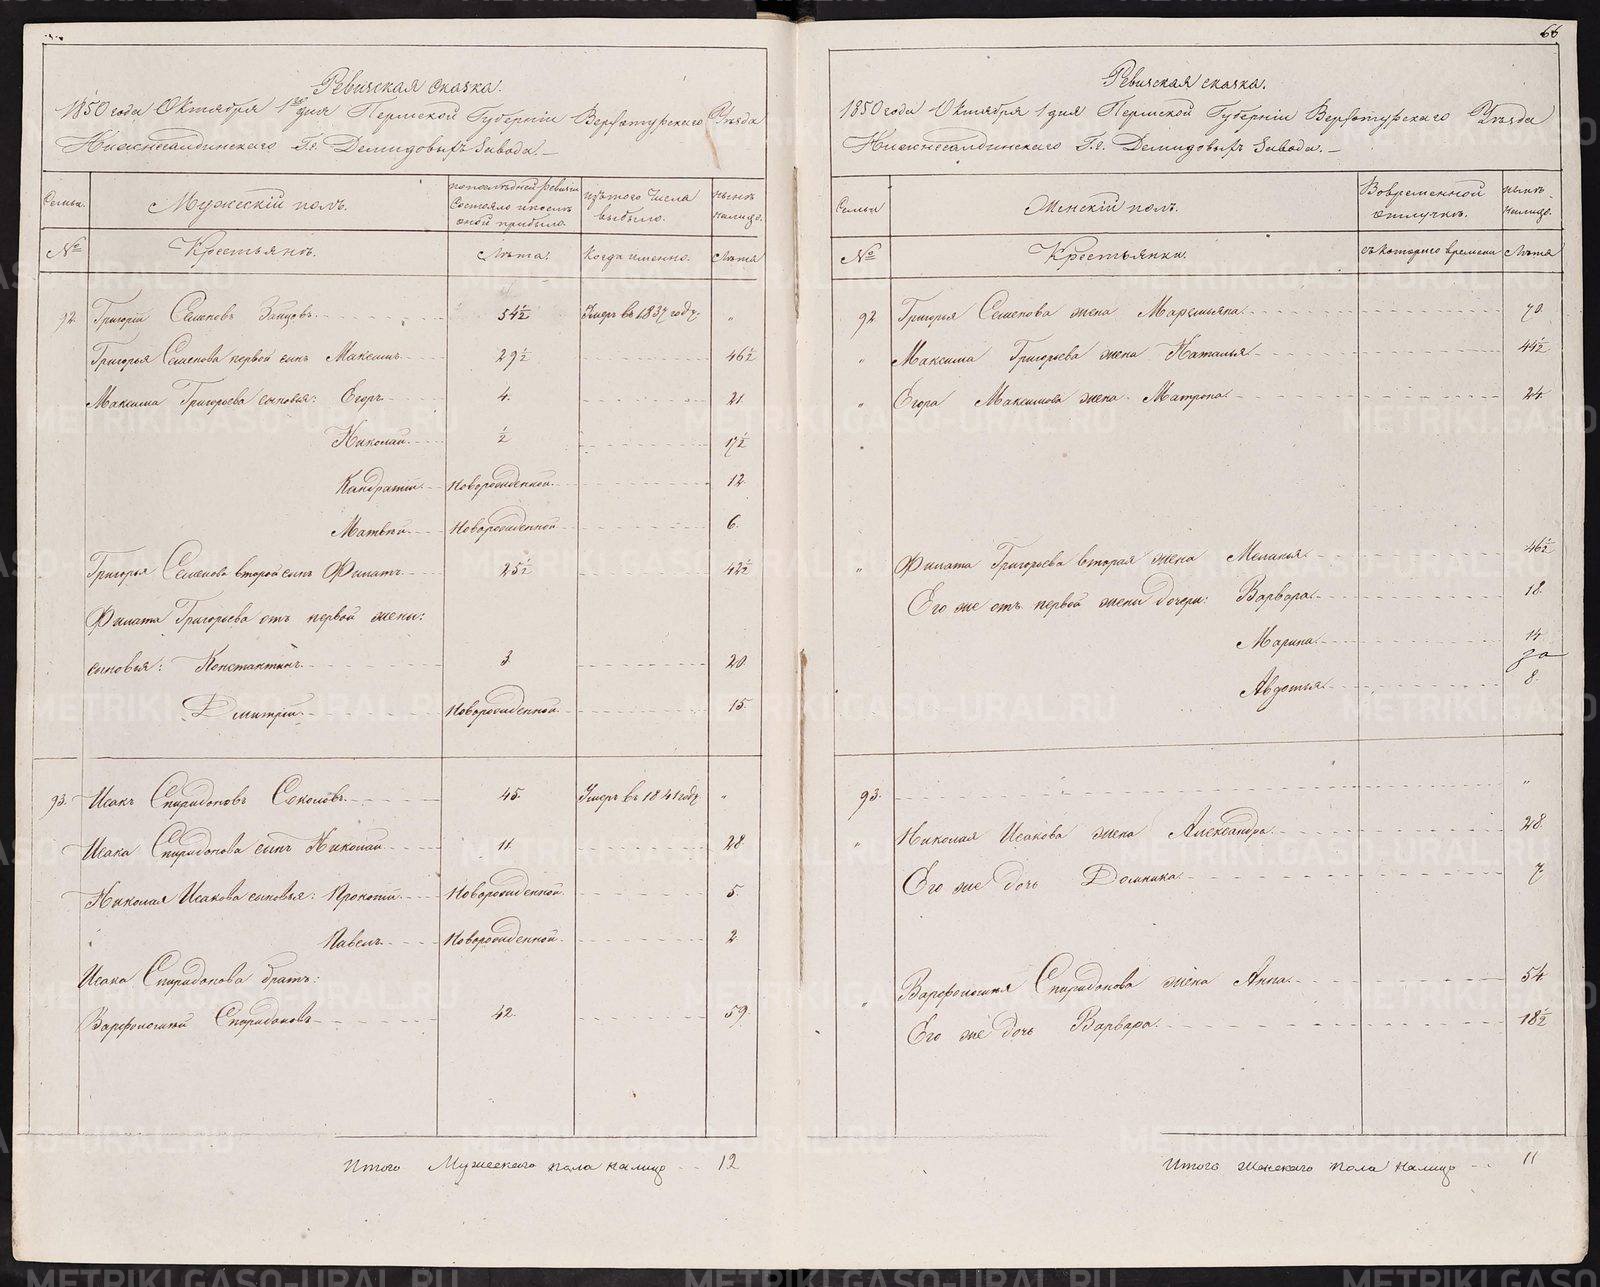 Ревижская сказка.
1850 года Октября 1го дня Пермской Губернiи Верхотурскаго Уѣзда
Нижнесалдинскаго Г.г. Демидовыхъ Завода.
Семьи.
Мужескiй полъ.
по последней ревизiи состояло и после оной прибыло.
изъ того числа выбыло.
нынѣ налицо.
№
Крестьянъ.
Лѣта.
Когда именно.
Лѣта
92. Григорiй Семеновъ Зайцовъ. 54½ Умеръ въ 1837 году. "
Григорья Семенова первой сынъ Максимъ 29½ 46½
Максима Григорьева сыновья: Егоръ 4. 21.
Николай ½ 17½
Кандратiй Новорожденной. 12.
Матвѣй Новорожденной 6.
Григорья Семенова второй сынъ Филатъ 25½ 42½
Филата Григорьева отъ первой жены:
сыновья: Константинъ 3. 20.
Дмитрiй Новорожденной 15.
93. Исакъ Спиридоновъ Соколовъ. 45. Умеръ въ 1841 году "
Исака Спиридонова сынъ Николай 11. 28.
Николая Исакова сыновья: Прокопiй Новорожденной. 5.
Павелъ Новорожденной. 2.
Исака Спиридонова братъ:
Варфоломей Спиридоновъ 42. 59.
Итого Мужескаго пола налицо 12
66
Ревижская сказка.
1850 года Октября 1 дня Пермской Губернiи Верхотурскаго Уѣзда
Нижнесалдинскаго Г.г. Демидовыхъ Завода.
Семьи
Женскiй полъ.
Во временной отлучкѣ.
нынѣ налицо.
№
Крестьянки.
съ котораго времени
Лѣта
92. Григорья Семенова жена Маремьяна. 70.
" Максима Григорьева жена Наталья 44½
" Егора Максимова жена Матрона. 24.
" Филата Григорьева вторая жена Меланья 46½
Его же отъ первой жены дочери: Варвара. 18.
Марина. 14
Авдотья. 8.
93. "
" Николая Исакова жена Александра 28.
Его же дочь Домника 7
" Варфоломея Спиридонова жена Анна. 54
Его же дочь Варвара. 18½
Итого Женскаго пола налицо 11
METRIKI.GASO-URAL.RU